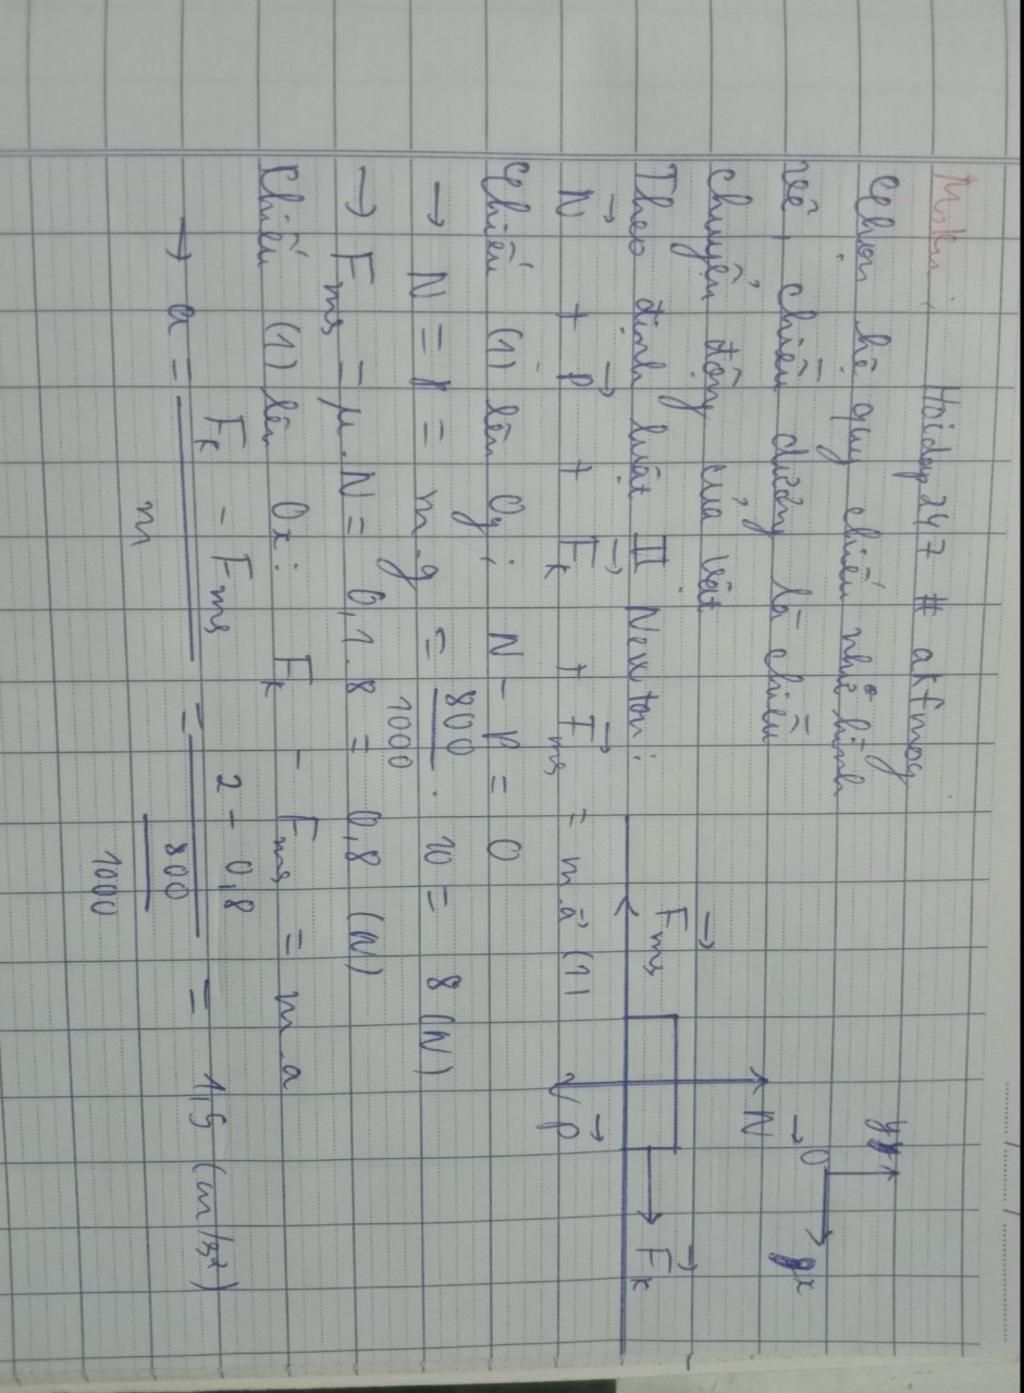 Moku Hoidap247 # akfmoy
Chọn hệ quy chiếu như hình
vẽ, chiều dương là chiều
chuyển động của vật
Theo định luật II Newton:
N⃗ + P⃗ + F⃗k + F⃗ms = ma⃗ (1)
Chiếu (1) lên Oy: N - P = 0
→ N = P = m.g = 800/1000 . 10 = 8 (N)
→ Fms = μ.N = 0,1.8 = 0,8 (N)
Chiếu (1) lên Ox: Fk - Fms = m.a
→ a = (Fk - Fms)/m = (2 - 0,8)/(800/1000) = 1,5 (m/s²)
y
O
x
N⃗
F⃗ms
F⃗k
P⃗